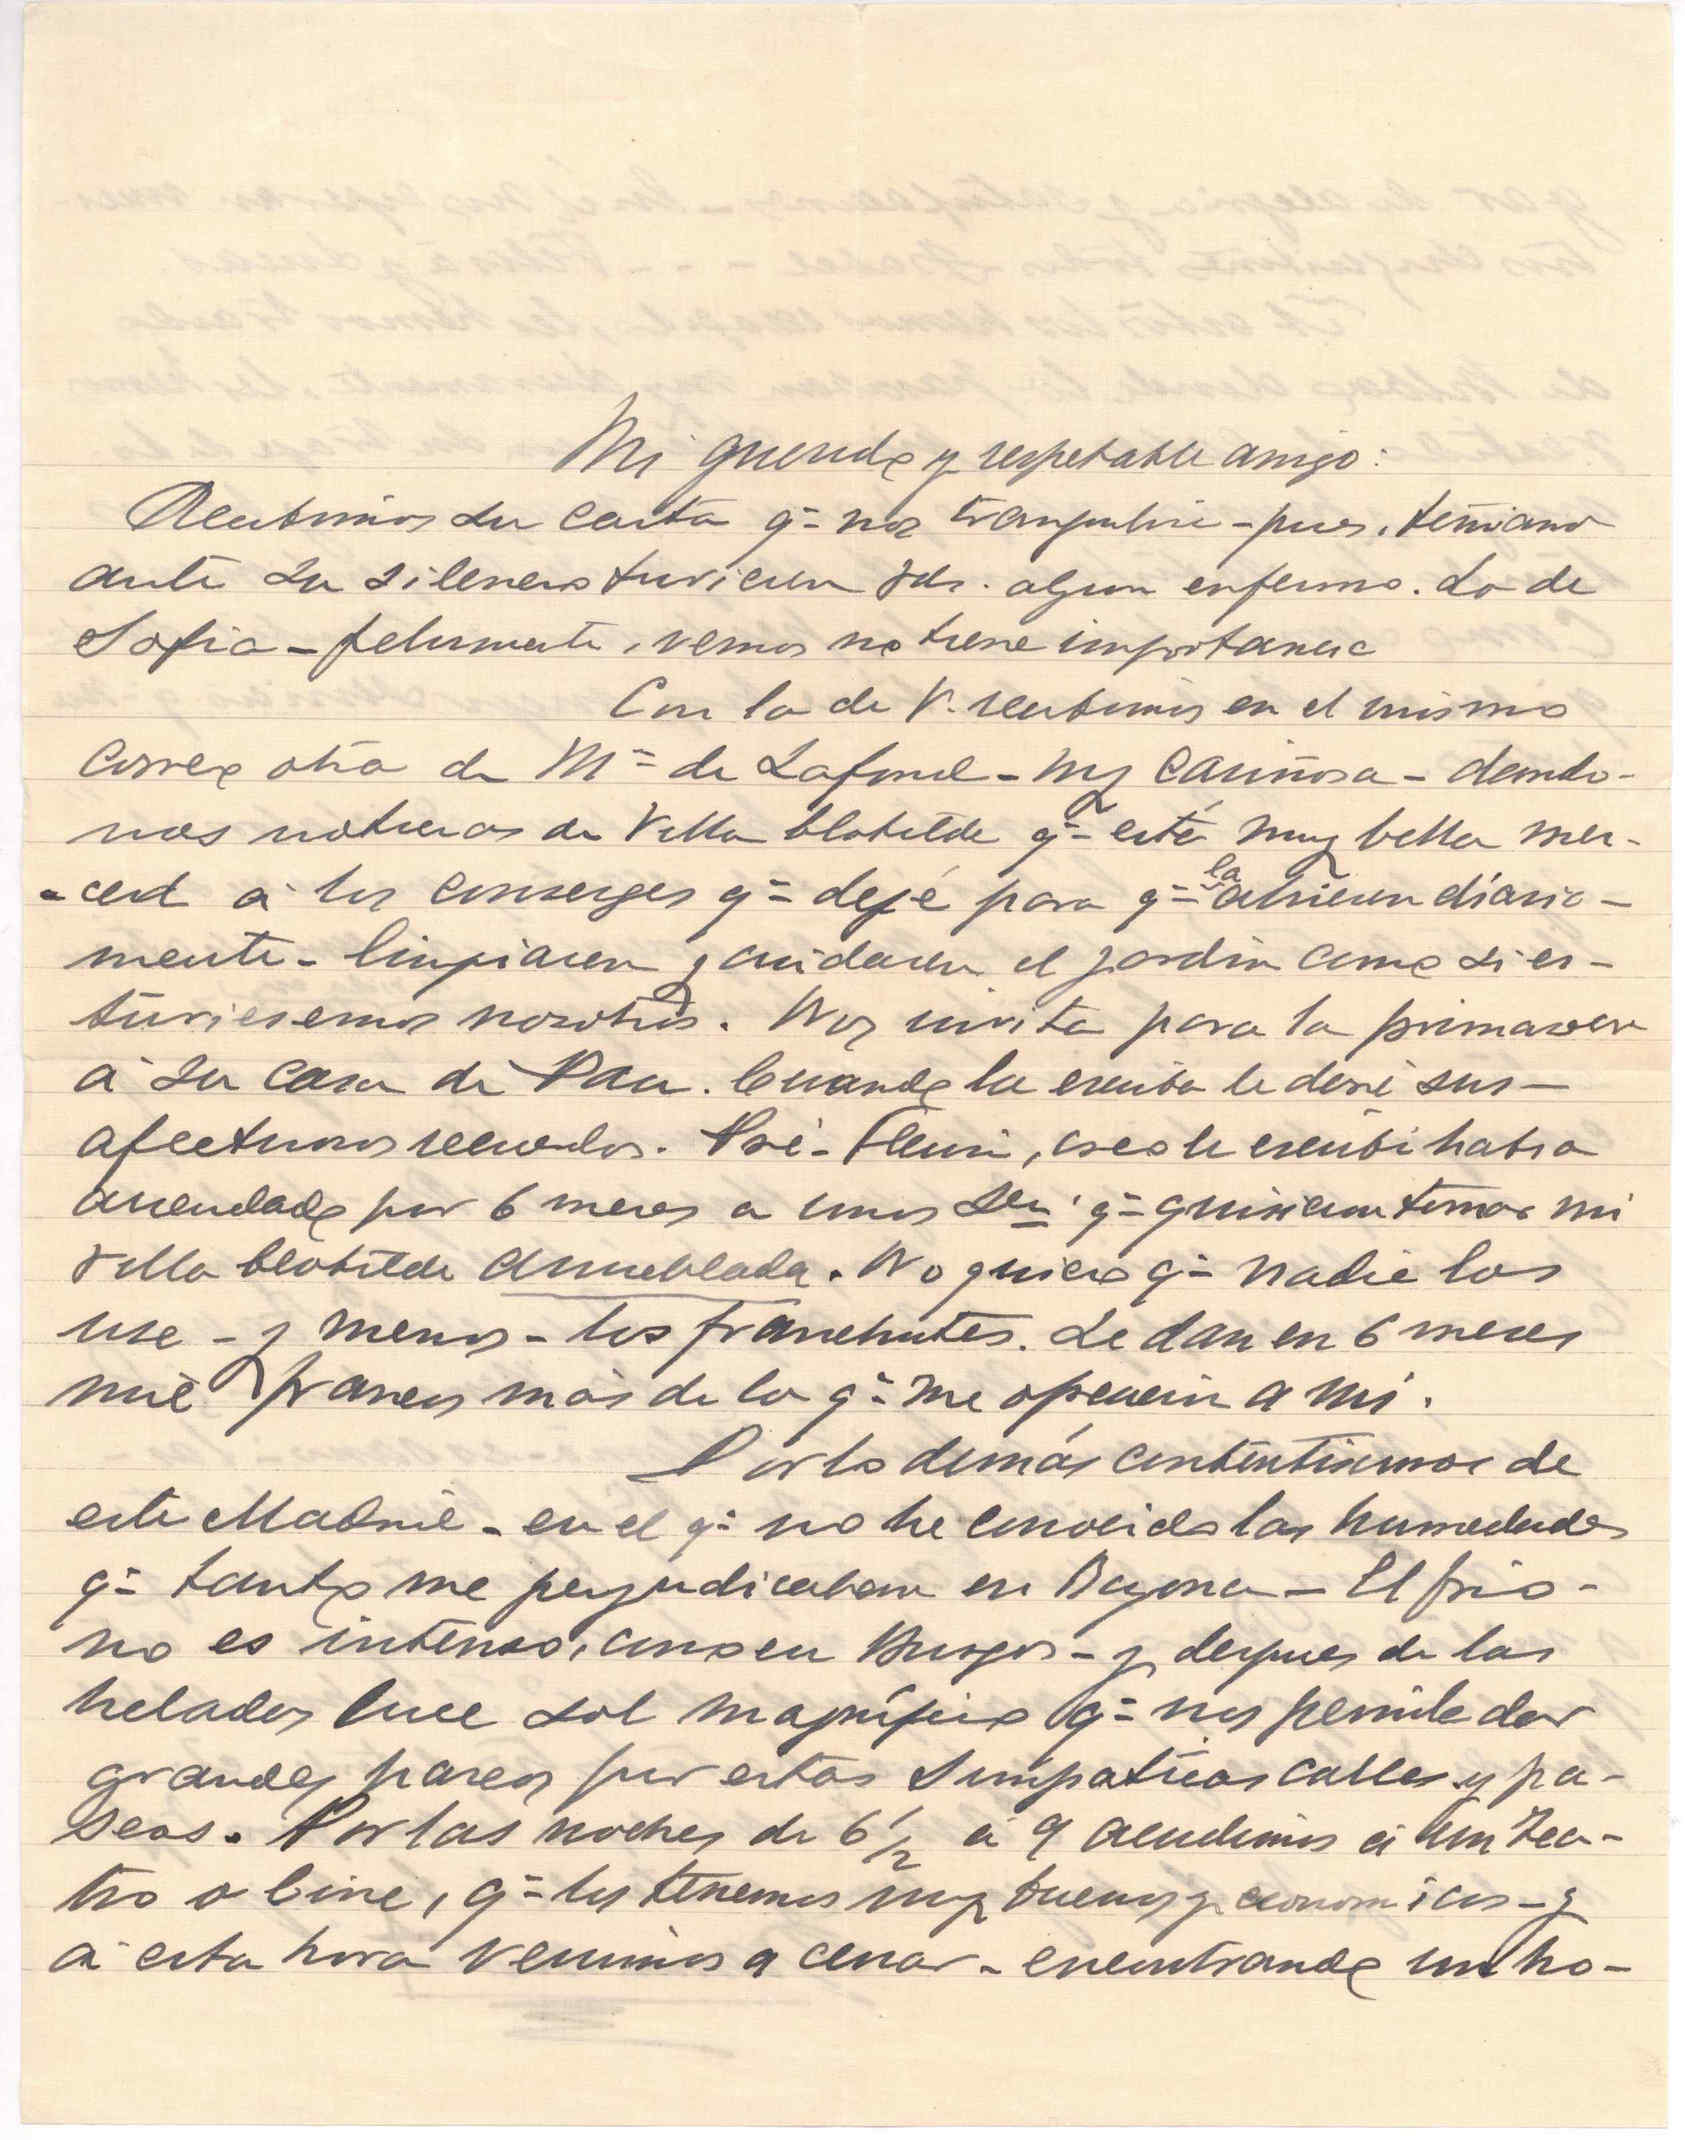 Mi querido y respetable amigo:
Recibimos su carta q= nos tranquiliza - pues, temiamos
ante su silencio tuvieren Vds. algun enfermo. Lo de
Sofia - felizmente, vemos no tiene importancia
Con la de V. recibimos en el mismo
correo otra de Mme de Lafond - muy cariñosa - dando-
nos noticias de Villa Clotilde q= está muy bella mer-
-ced á los conserges q= dejé para q= la abriesen diaria-
mente - limpiasen y cuidasen el jardin como si es-
tuviesemos nosotros. Nos invita para la primavera
á su casa de Pau. Cuando la escriba le daré sus
afectuosos recuerdos. Pré-Fleuri, creo le escribí habia
arrendado por 6 meses a unos Sres q= quisieron tomar mi
Villa Clotilde amueblada. No quiero q= nadie los
use - y menos - los franchutes. Le dan en 6 meses
mil francos más de lo q= me ofrecian a mi.
Por lo demás contentisimos de
este Madrid - en el q= no he conocido las humedades
q= tanto me perjudicaban en Bayona - El frio -
no es intenso, como en Burgos - y despues de las
heladas luce sol magnífico q= nos permite dar
grandes paseos por estas simpaticas calles y pa-
seos. Por las noches de 6 1/2 á 9 acudimos á un Tea-
tro o Cine, q= los tenemos muy buenos y economicos - y
á esta hora venimos a cenar - encontrando un ho-